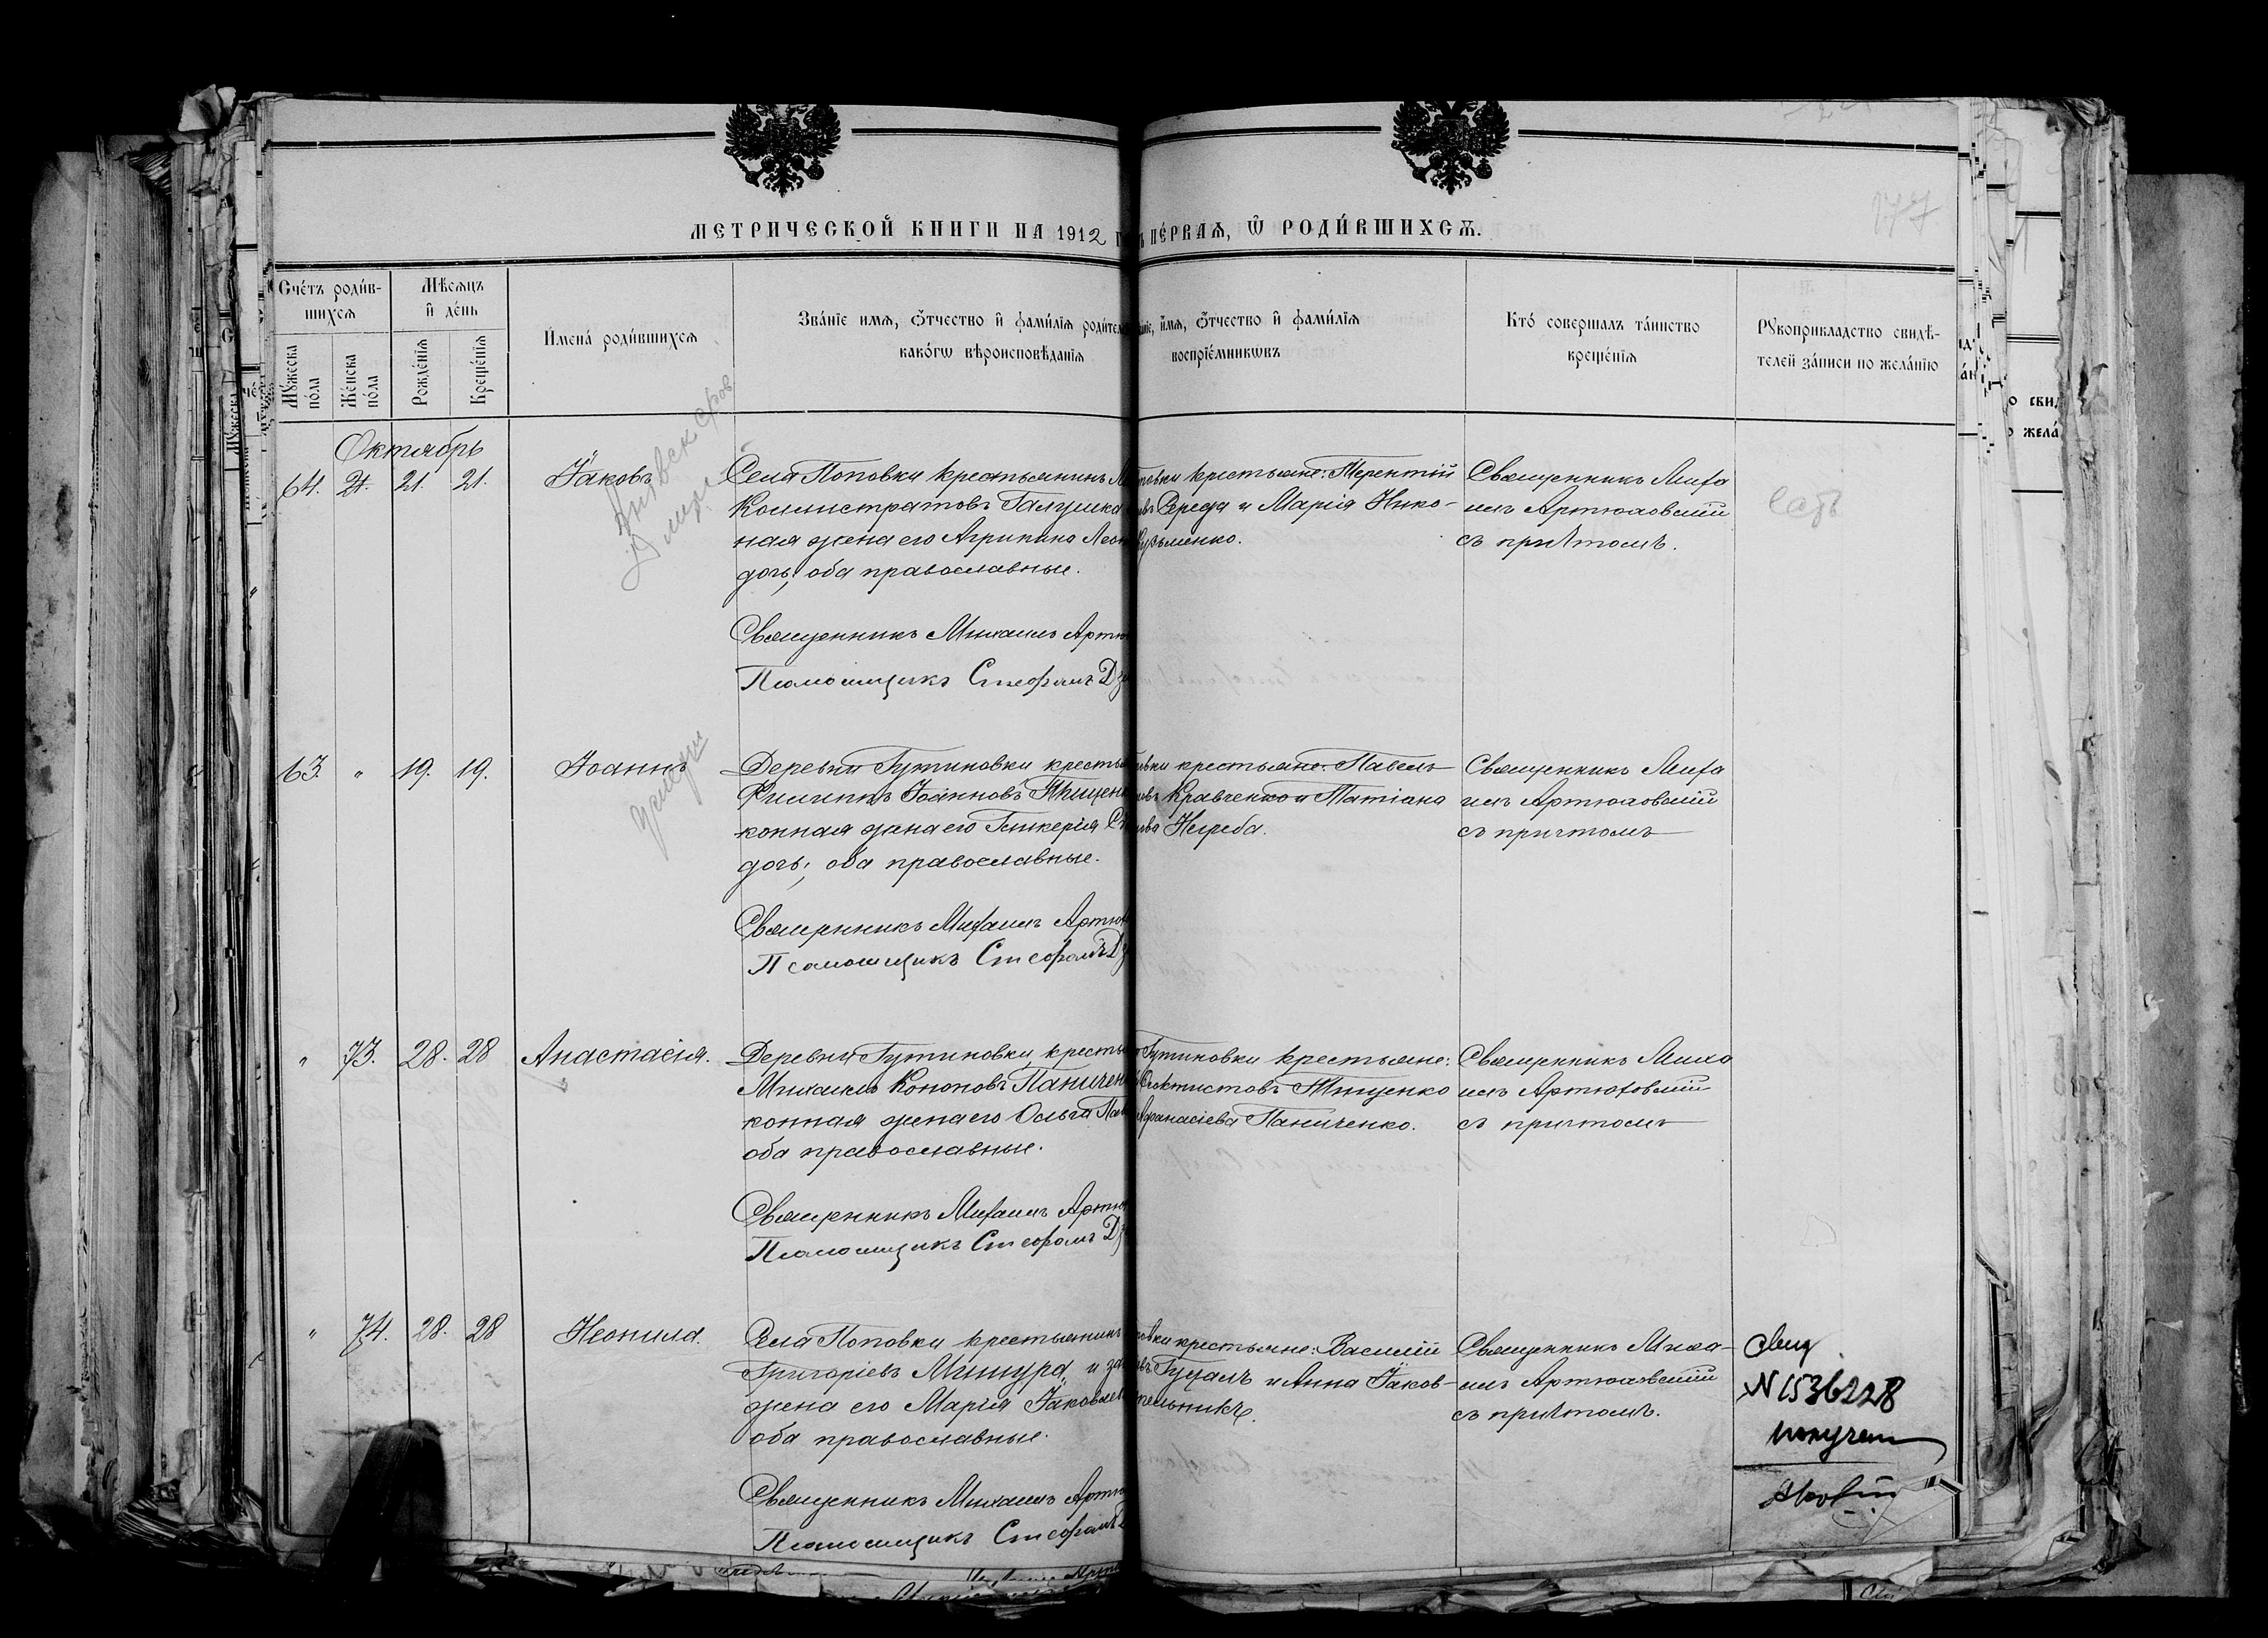 МЕТРИЧЕСКОЙ КНИГИ НА 1912 ПЕ́РВАѦ, Ѿ РОДИ́ВШИХСѦ.
Сче́тъ роди́в-
шихсѧ
Мѣсѧцъ
и҆ де́нь
Мꙋ́жеска по́ла
Же́нска по́ла
Рожде́нїѧ
Креще́нїѧ
И҆мена́ роди́вшихсѧ
Зва́нїе имѧ, ѻ҆́тчество и҆ фами́лїѧ родител
како́гѡ вѣроисповѣ́данїѧ
и҆́мѧ, ѻ҆́тчество и҆ фами́лїѧ
воспрїе́мникѡвъ
Кто́ соверша́лъ та́инство
креще́нїѧ
Рꙋкоприкла́дство свидѣ́-
телей за́писи по жела́нїю
Октябрь
64. 21. 21. Іаковъ
Села Поповки крестьянинъ
Каллистратовъ Галушка
ная жена его Агрипина Леон
дочь; оба православные.
Священникъ Михаилъ Артю
Псаломщикъ Стефанъ Дз
повки крестьяне: Терентій
Середа и Марія Нико-
Кузьменко.
Священникъ Миха
илъ Артюховскій
съ причтомъ.
63. " 19. 19. Іоаннъ
Деревни Гутиновки кресть
Филиппъ Іоанновъ Тищен
конная жена его Гликерія
дочь; оба православные.
Священникъ Михаилъ Артю
Псаломщикъ Стефанъ Дз
вки крестьяне: Павелъ
Кравченко и Татіана
Негреба.
Священникъ Миха
илъ Артюховскій
съ причтомъ
" 73. 28. 28 Анастасія.
Деревни Гутиновки кресть
Михаилъ Кононовъ Паничен
конная жена его Ольга Пав
оба православные.
Священникъ Михаилъ Артю
Псаломщикъ Стефанъ Дз
Гутиновки крестьяне:
Ѳеоктистовъ Тищенко
Афанасіева Паниченко.
Священникъ Миха
илъ Артюховскій
съ причтомъ
" 74. 28. 28 Неонила.
Села Поповки крестьянинъ
Григоріевъ Мишура, и за
жена его Марія Іаковлев
оба православные.
Священникъ Михаилъ Артю
Псаломщикъ Стефанъ
вки крестьяне: Василій
Гуцалъ и Анна Іаков-
Мельникъ.
Священникъ Миха-
илъ Артюховскій
съ причтомъ.
свид
N 1536228